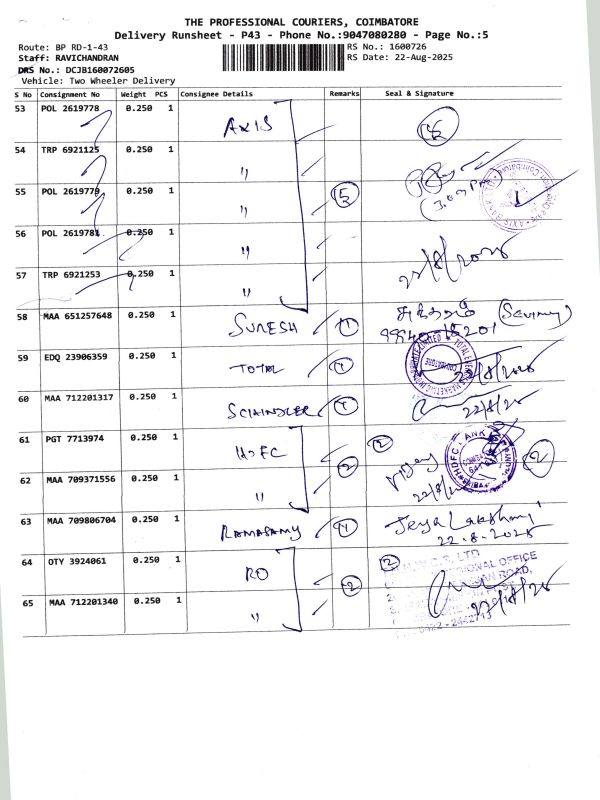 THE PROFESSIONAL COURIERS, COIMBATORE
Delivery Runsheet - P43 - Phone No.:9047080280 - Page No.:5
Route: BP RD-1-43
RS No.: 1600726
Staff: RAVICHANDRAN
RS Date: 22-Aug-2025
DRS No.: DCJB160072605
Vehicle: Two Wheeler Delivery
S No Consignment No Weight PCS Consignee Details Remarks Seal & Signature
53 POL 2619778 0.250 1 AXIS 5
54 TRP 6921125 0.250 1 "
55 POL 2619779 0.250 1 " 5
56 POL 2619781 0.250 1 "
57 TRP 6921253 0.250 1 " 22/8/2025
58 MAA 651257648 0.250 1 SURESH 1
59 EDQ 23906359 0.250 1 TOTAL 1
60 MAA 712201317 0.250 1 SCHINDLER 1 22/8/25
61 PGT 7713974 0.250 1 HDFC 2 2
62 MAA 709371556 0.250 1 " 2
63 MAA 709806704 0.250 1 RAMASAMY 1 Jeya Lakshmi
22.8.2025
64 OTY 3924061 0.250 1 RO 2 2
65 MAA 712201340 0.250 1 "